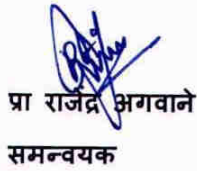 प्रा राजेंद्र अगवाने
समन्वयक